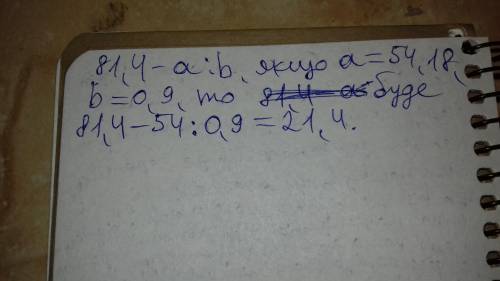 81,4-a:b, якщо a=54,18,
b=0,9, то буде
81,4-54:0,9=21,4.